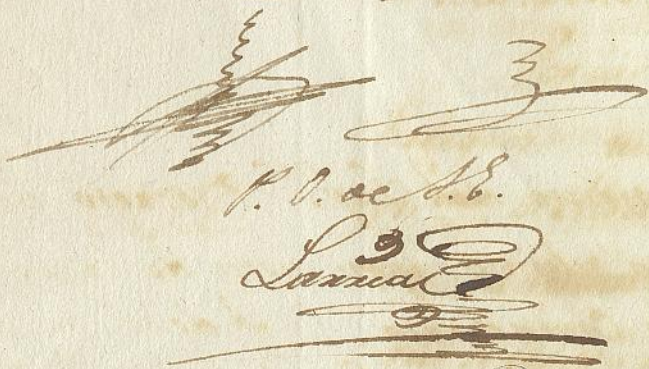 P. O. de S. E.
Larrea